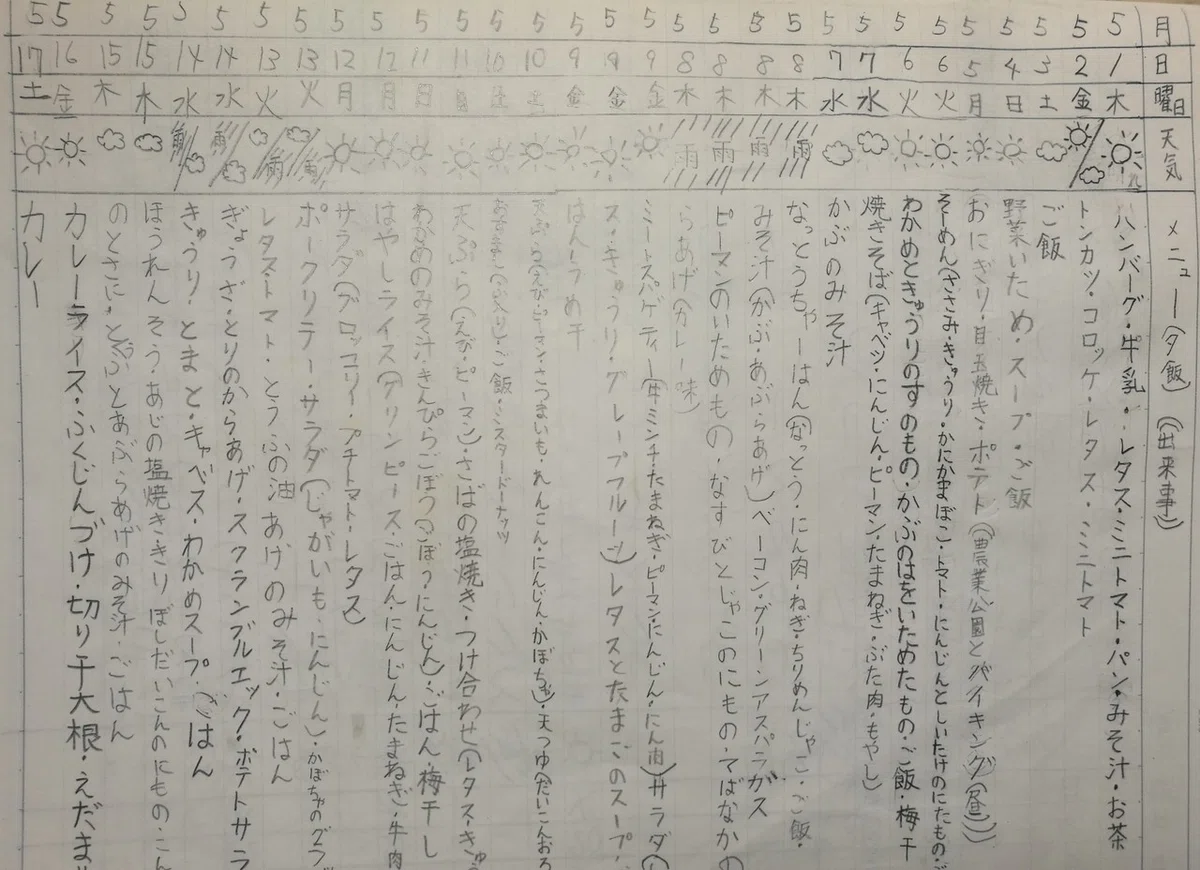 月 日 曜日 天気 メニュー(夕飯) (出来事)
5 1 木 ハンバーグ・牛乳・レタス・ミニトマト・パン・みそ汁・お茶
5 2 金 トンカツ・コロッケ・レタス・ミニトマト
5 3 土 ご飯
5 4 日 野菜いため・スープ・ご飯
5 5 月 おにぎり・目玉焼き・ポテト(農業公園とバイキング(昼))
5 6 火 そーめん(ささみ・きゅうり・かにかまぼこ・トマト・にんじんとしいたけのにたもの・ご
5 6 火 わかめときゅうりのすのもの・かぶのはをいためたもの・ご飯・梅干
5 7 水 焼きそば(キャベツ・にんじん・ピーマン・たまねぎ・ぶた肉・もやし
5 7 水 かぶのみそ汁
5 8 木 雨 なっとうちゃーはん(なっとう・にん肉ねぎ・ちりめんじゃこ・ご飯・
5 8 木 雨 みそ汁(かぶ・あぶらあげ)ベーコン・グリーンアスパラガス
5 8 木 雨 ピーマンのいためもの・なすびとじゃこのにもの・てばなかの
5 8 木 雨 らあげ(カレー味)
5 9 金 ミートスパゲティー(牛ミンチ・たまねぎ・ピーマン・にんじん・にん肉)サラダ(
5 9 金 ス・きゅうり・グレープフルーツ)レタスとたまごのスープ・
5 9 金 はん・うめ干
5 10 土 天ぷら(えび・ピーマン・さつまいも・れんこん・にんじん・かぼちゃ)・天つゆ(だいこんおろ
5 10 土 ご飯・ミスタードーナッツ
5 11 日 天ぷら(えび・ピーマン)・さばの塩焼き・つけ合わせ(レタス・きゅ
5 11 日 わかめのみそ汁・きんぴらごぼう(ごぼう・にんじん)・ごはん・梅干し
5 12 月 はやしライス(グリンピース・ごはん・にんじん・たまねぎ・牛肉
5 12 月 サラダ(ブロッコリイ・プチトマト・レタス)
5 13 火 雨 ポークソテー・サラダ(じゃがいも・にんじん)・かぼちゃの
5 13 火 雨 レタス・トマト・とうふの油あげのみそ汁・ごはん
5 14 水 雨 ぎょうざ・とりのからあげ・スクランブルエック・ポテトサラ
5 14 水 雨 きゅうり・とまと・キャベス・わかめスープ・ごはん
5 15 木 ほうれんそう・あじの塩焼き・きりぼしだいこんのにもの・こん
5 15 木 のとさに・とうふとあぶらあげのみそ汁・ごはん
5 16 金 カレーライス・ふくじんづけ・切り干大根・えだま
5 17 土 カレー